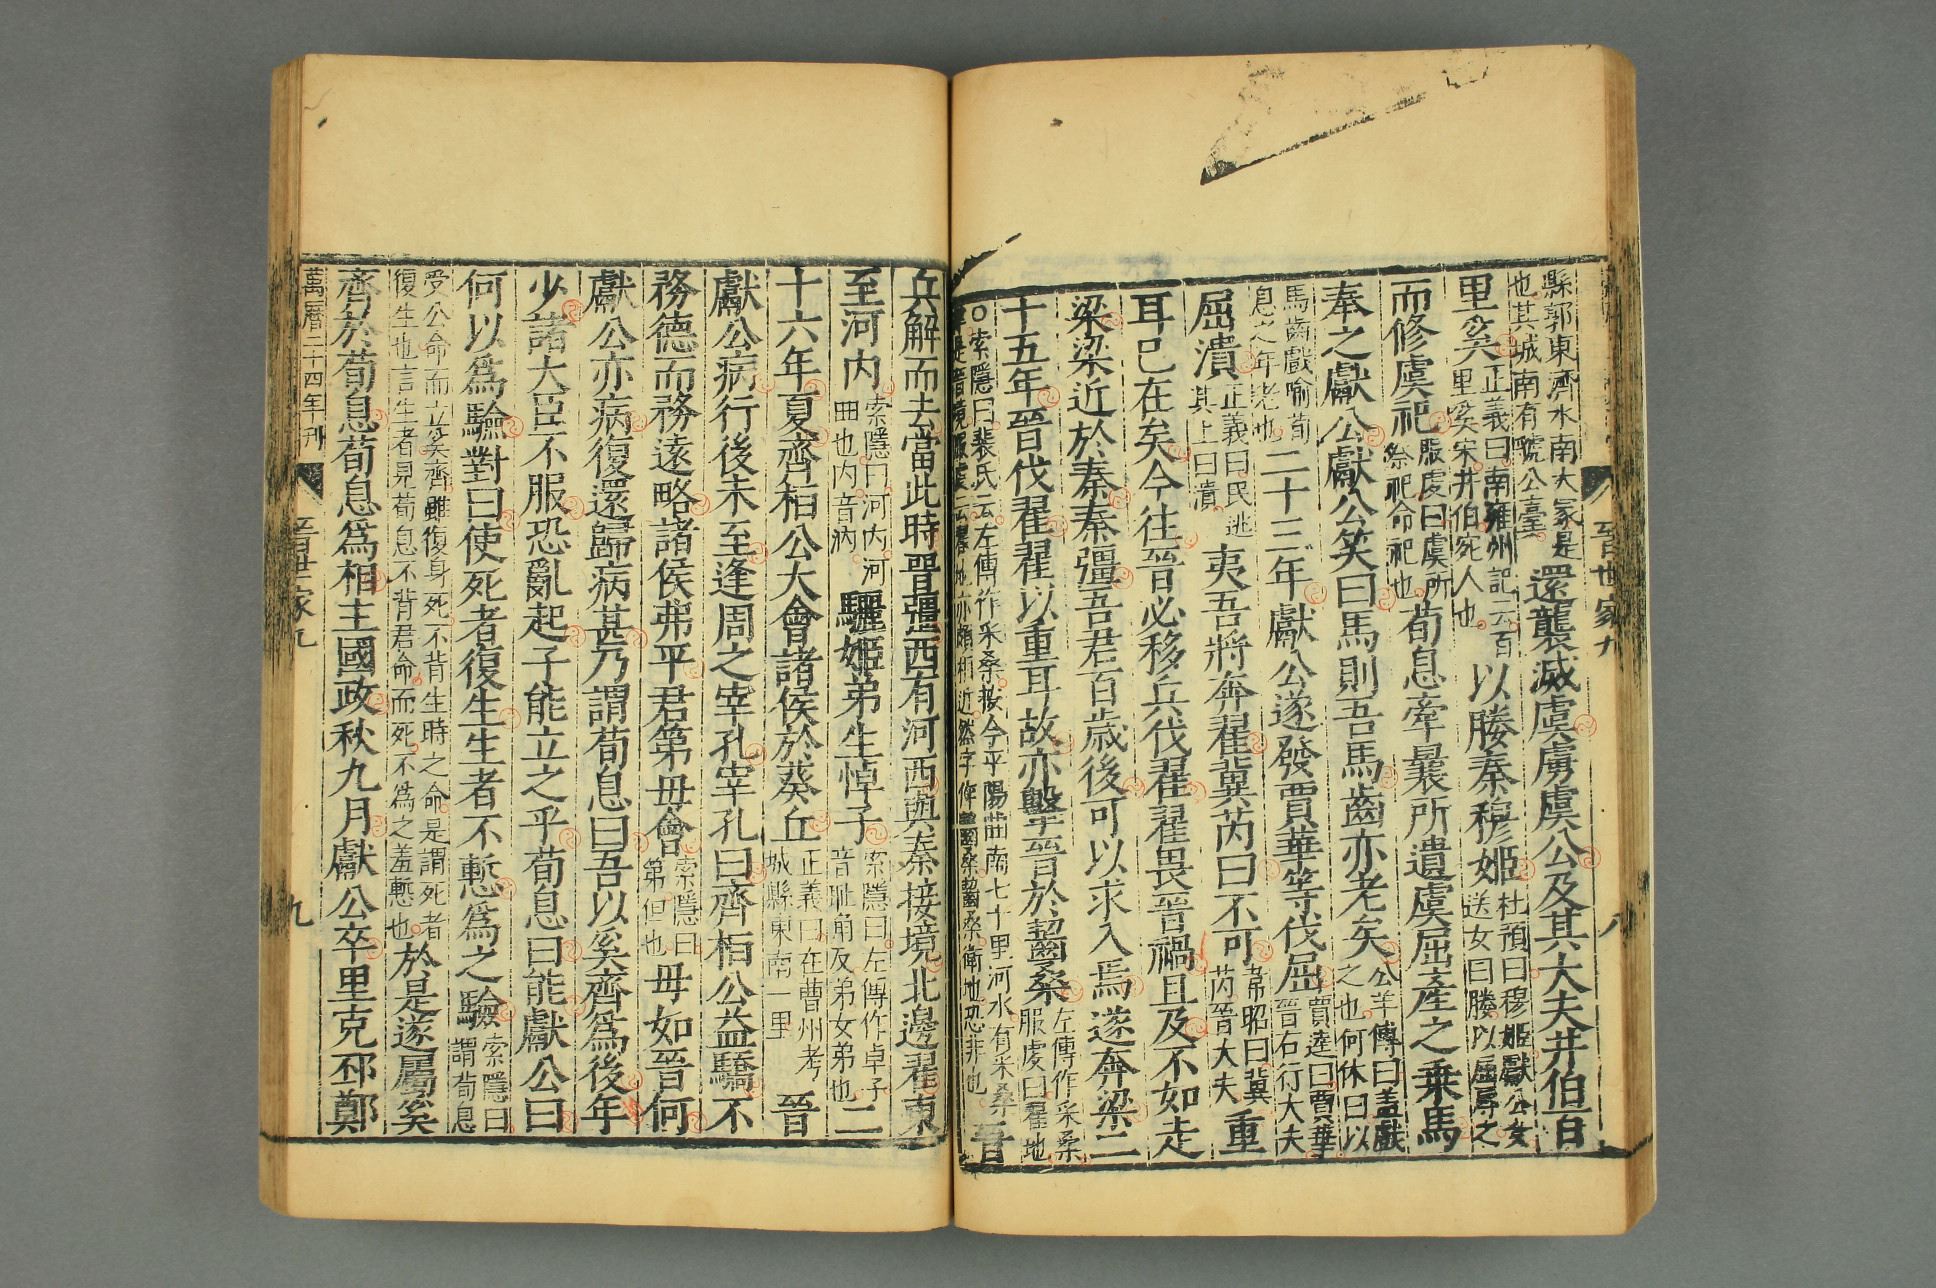 晉世家九
八
縣郭東濟水南大冢是也其城南有虢公臺還襲滅虞虜虞公及其大夫井伯百
里奚正義曰南雍州記云百里奚宋井伯宛人也以媵秦穆姬杜預曰穆姬獻公女送女曰媵以屈辱之
而修虞祀服虔曰虞所祭祀命祀也荀息牽曩所遺虞屈產之乘馬
奉之獻公獻公笑曰馬則吾馬齒亦老矣公羊傳曰蓋戲之也何休曰以
馬齒戲喻荀息之年老也二十三年獻公遂發賈華等伐屈賈逵曰賈華晉右行大夫
屈潰正義曰民逃其上曰潰夷吾將奔翟冀芮曰不可韋昭曰冀芮晉大夫重
耳已在矣今往晉必移兵伐翟翟畏晉禍且及不如走
梁梁近於秦秦彊吾君百歲後可以求入焉遂奔梁二
十五年晉伐翟翟以重耳故亦擊晉於齧桑左傳作采桑服虔曰翟地
○索隱曰裴氏云左傳作采桑按今平陽莊南七十里河水有采桑津是晉境服虔云翟地亦頗相近然字作齧桑齧桑衛地恐非也晉
兵解而去當此時晉彊西有河西與秦接境北邊翟東
至河內索隱曰河內河曲也內音汭驪姬弟生悼子索隱曰左傳作卓子音恥角反弟女弟也二
十六年夏齊桓公大會諸侯於葵丘正義曰在曹州考城縣東南一里晉
獻公病行後未至逢周之宰孔宰孔曰齊桓公益驕不
務德而務遠略諸侯弗平君第毋會索隱曰第但也毋如晉何
獻公亦病復還歸病甚乃謂荀息曰吾以奚齊為後年
少諸大臣不服恐亂起子能立之乎荀息曰能獻公曰
何以為驗對曰使死者復生生者不慙為之驗索隱曰謂荀息
受公命而立奚齊雖復身死不背生時之命是謂死者復生也言生者見荀息不背君命而死不為之羞慙也於是遂屬奚
齊於荀息荀息為相主國政秋九月獻公卒里克邳鄭
萬曆二十四年刊
晉世家九
九